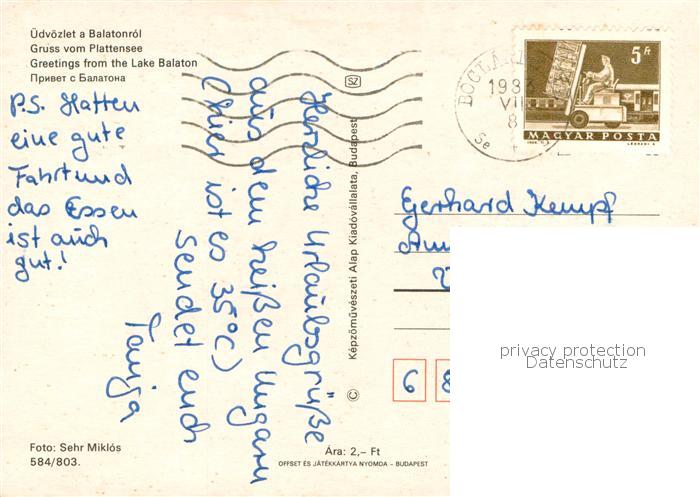 Üdvözlet a Balatonról
Gruss vom Plattensee
Greetings from the Lake Balaton
Привет с Балатона
P.S. Hatten
eine gute
Fahrt und
das Essen
ist auch
gut!
Herzliche Urlaubsgrüße
aus dem heißen Ungarn
(hier ist es 35°C)
sendet euch
Tanja
Foto: Sehr Miklós
584/803.
SZ
© Képzőművészeti Alap Kiadóvállalata, Budapest
Ára: 2,– Ft
OFFSET ÉS JÁTÉKKÁRTYA NYOMDA – BUDAPEST
198
VII
8
5 Ft
MAGYAR POSTA
Gerhard Kempf
6 8
privacy protection
Datenschutz